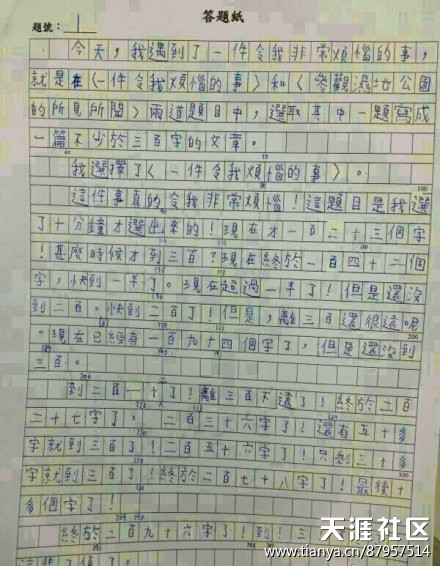 答題紙
題號:1
今天,我遇到了一件令我非常煩惱的事,
就是在〈一件令我煩惱的事〉和〈參觀濕地公園
的所見所聞〉兩道題目中,選取其中一題寫成
一篇不少於三百字的文章。
我選擇了〈一件令我煩惱的事〉。
這件事真的令我非常煩惱!這題目是我選
了十分鐘才選出來的!現在才一百二十三個字
!甚麼時候才到三百?現在終於一百四十二個
字,快到一半了。現在超過一半了!但是還沒
到二百。快到二百了!但是,離三百還很遠。
。現在已經有一百九十四個字了,但是還沒到
三百。
到二百一十了!離三百不遠了!終於二百
二十七字了。二百三十六字了!還有五十多
字就到三百了!二百五十六字了!只剩三十多
字就到三百了!終於二百七十八字了!最後十
多個字了!
終於二百九十六字了!到!三
天涯社区
www.tianya.cn/87957514